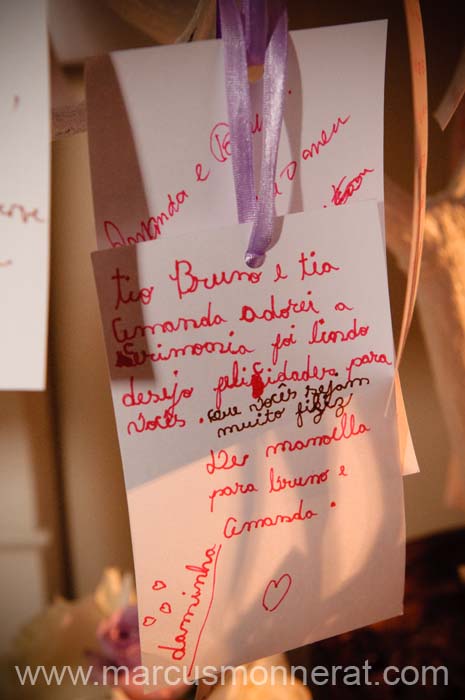 Amanda e
tio Bruno e tia
Amanda adorei a
serimonia foi lindo
desejo felisidades para
vocês. que vocês sejam
muito feliz
De manoella
para bruno e
Amanda.
daminha
www.marcusmonnerat.com